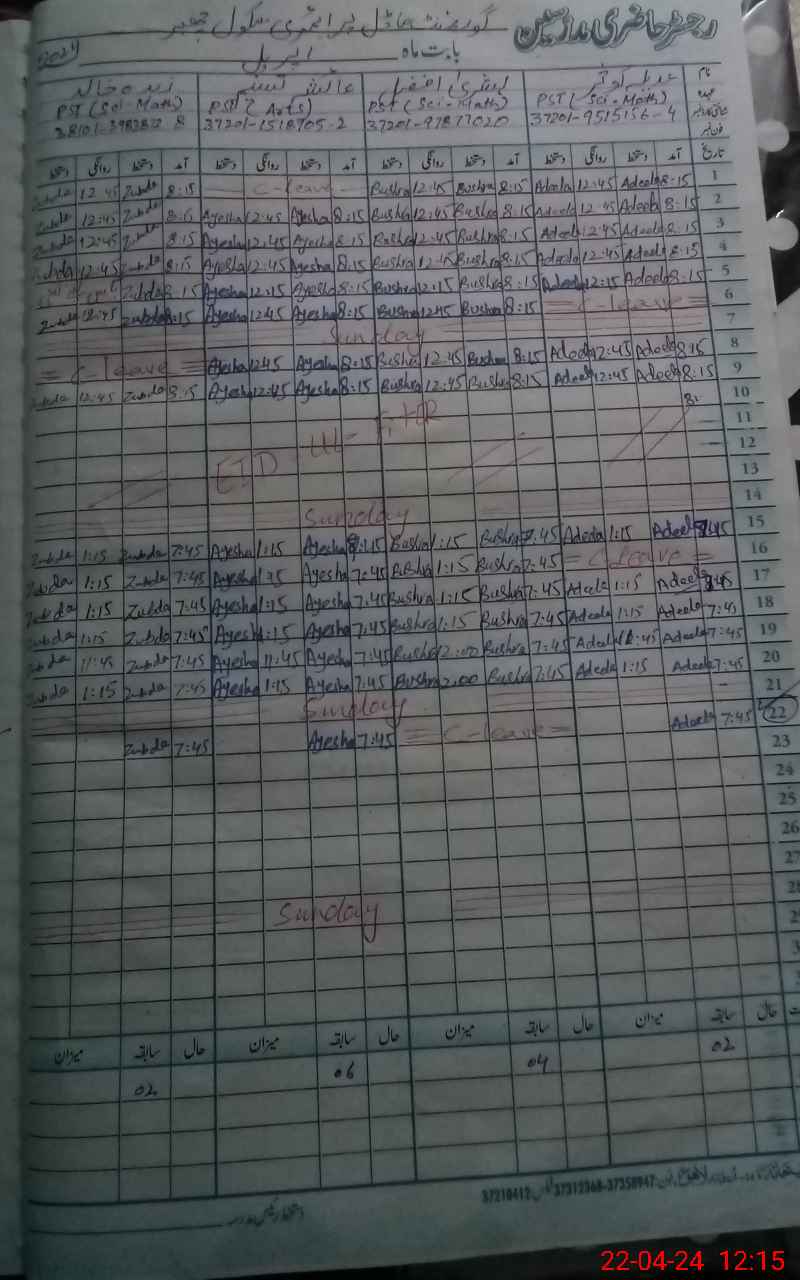 رجسٹر حاضری مدرسین گورنمنٹ ماڈل پرائمری سکول
بابت ماہ اپریل 2024
نام عائشہ تبسم زبدہ خالد
PST (Sci-Math) PST (Sci-Math) PST (Arts) PST (Sci-Math)
37201-9515156-4 37201-1518705-2
تاریخ آمد دستخط روانگی دستخط آمد دستخط روانگی دستخط آمد دستخط روانگی دستخط آمد دستخط روانگی دستخط
Zubda 12:45 Zubda 8:15 C-leave Bushra 12:45 Bushra 8:15 Adeela 12:45 Adeela 8:15 1
Zubda 12:45 Zubda 8:15 Ayesha 12:45 Ayesha 8:15 Bushra 12:45 Bushra 8:15 Adeela 12:45 Adeela 8:15 2
Zubda 12:45 Zubda 8:15 Ayesha 12:45 Ayesha 8:15 Bushra 12:45 Bushra 8:15 Adeela 12:45 Adeela 8:15 3
Zubda 12:45 Zubda 8:15 Ayesha 12:45 Ayesha 8:15 Bushra 12:45 Bushra 8:15 Adeela 12:45 Adeela 8:15 4
Zubda 8:15 Ayesha 12:15 Ayesha 8:15 Bushra 12:15 Bushra 8:15 Adeela 12:15 Adeela 8:15 5
Zubda 12:45 Zubda 8:15 Ayesha 12:45 Ayesha 8:15 Bushra 12:45 Bushra 8:15 = C-leave = 6
Sunday 7
= C leave = Ayesha 12:45 Ayesha 8:15 Bushra 12:45 Bushra 8:15 Adeela 12:45 Adeela 8:15 8
Zubda 12:45 Zubda 8:15 Ayesha 12:45 Ayesha 8:15 Bushra 12:45 Bushra 8:15 Adeela 12:45 Adeela 8:15 9
8: 10
EID - Ul - FitR 11
12
13
Sunday 14
Zubda 1:15 Zubda 7:45 Ayesha 1:15 Ayesha 8:15 Bushra 1:15 Bushra 7:45 Adeela 1:15 Adeela 7:45 15
Zubda 1:15 Zubda 7:45 Ayesha 1:15 Ayesha 7:45 Bushra 1:15 Bushra 7:45 = C leave = 16
Zubda 1:15 Zubda 7:45 Ayesha 1:15 Ayesha 7:45 Bushra 1:15 Bushra 7:45 Adeela 1:15 Adeela 7:45 17
Zubda 1:15 Zubda 7:45 Ayesha 1:15 Ayesha 7:45 Bushra 1:15 Bushra 7:45 Adeela 1:15 Adeela 7:45 18
Zubda 11:45 Zubda 7:45 Ayesha 11:45 Ayesha 7:45 Bushra 12:00 Bushra 7:45 Adeela 11:45 Adeela 7:45 19
Zubda 1:15 Zubda 7:45 Ayesha 1:15 Ayesha 7:45 Bushra 2:00 Bushra 7:45 Adeela 1:15 Adeela 7:45 20
Sunday 21
Zubda 7:45 Ayesha 7:45 = C-leave = Adeela 7:45 22
23
24
25
26
27
Sunday 28
29
حال سابقہ میزان حال سابقہ میزان حال سابقہ میزان حال سابقہ میزان
02 06 04 02
37210412 37312368-37358947
22-04-24 12:15